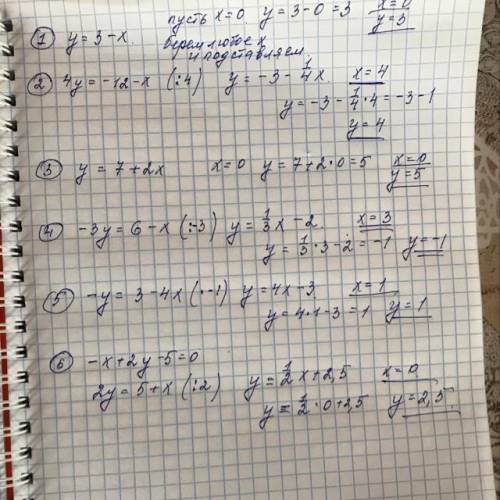 пусть x=0 y=3-0=3 x=0
① y=3-x. берем любое x y=3
и подставляем.
② 4y=-12-x (:4) y=-3-1/4x x=4
y=-3-1/4·4=-3-1
y=4
③ y=7+2x x=0 y=7+2·0=5 x=0
y=5
④ -3y=6-x (:-3) y=1/3x-2 x=3
y=1/3·3-2=-1 y=-1
⑤ -y=3-4x (·-1) y=4x-3 x=1
y=4·1-3=1 y=1
⑥ -x+2y-5=0
2y=5+x (:2) y=1/2x+2,5 x=0
y=1/2·0+2,5 y=2,5